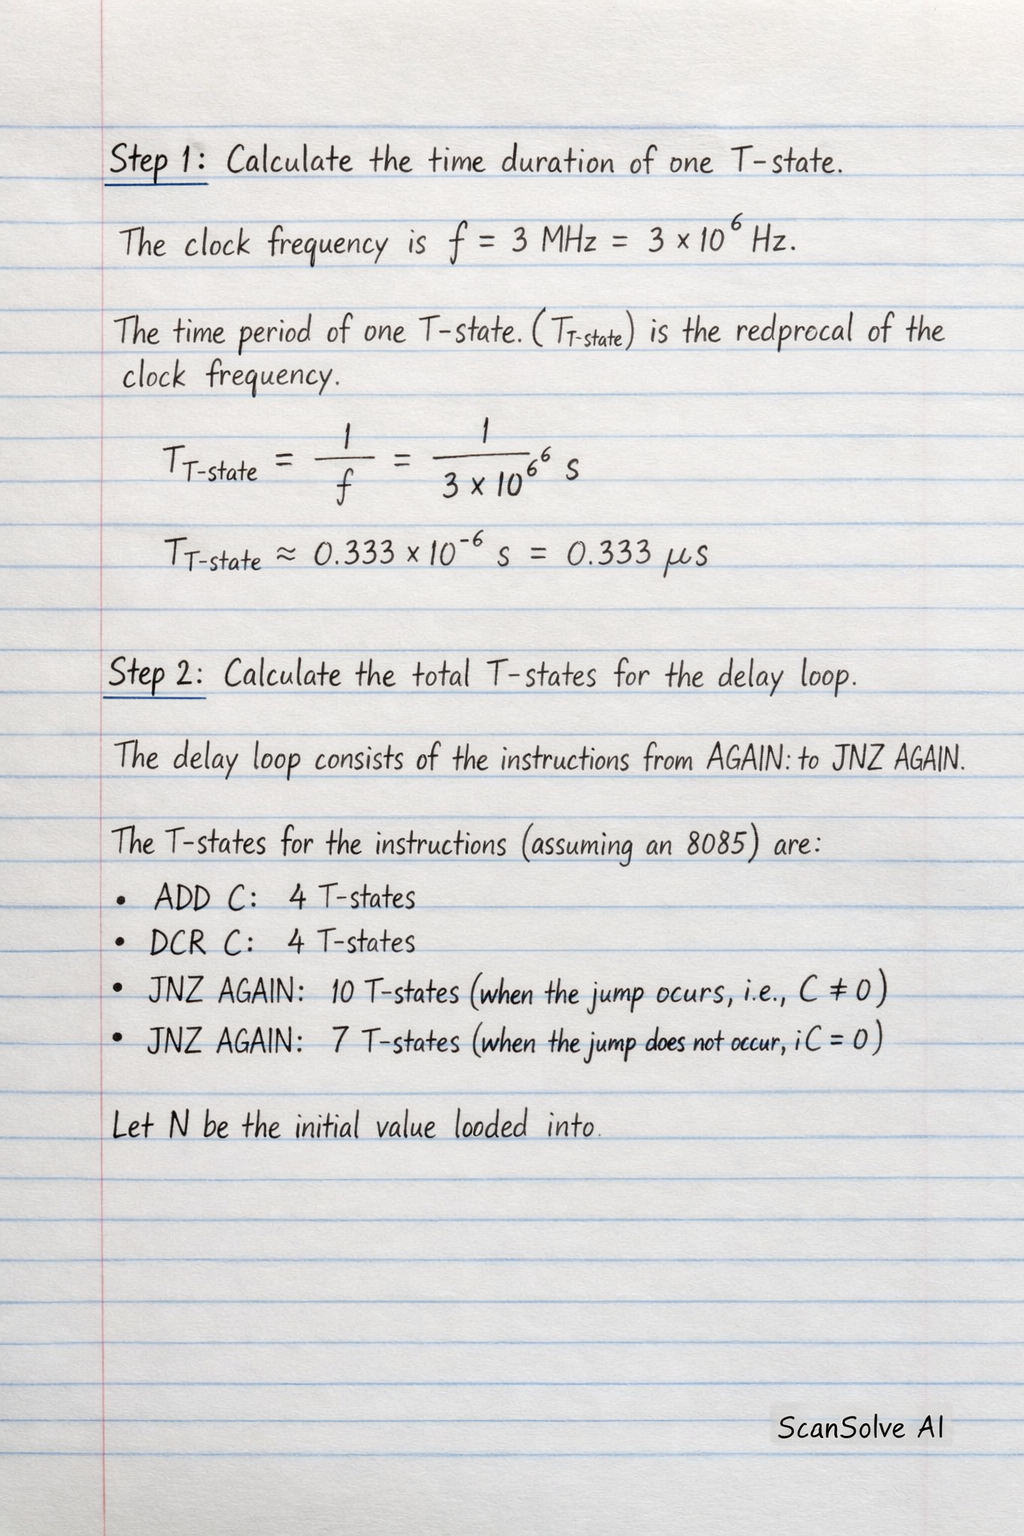 Step 1: Calculate the time duration of one T-state.
The clock frequency is f = 3 MHz = 3 × 10⁶ Hz.
The time period of one T-state. (T_T-state) is the redprocal of the
clock frequency.
T_T-state = 1/f = 1/(3 × 10⁶⁶) s
T_T-state ≈ 0.333 × 10⁻⁶ s = 0.333 μs
Step 2: Calculate the total T-states for the delay loop.
The delay loop consists of the instructions from AGAIN: to JNZ AGAIN.
The T-states for the instructions (assuming an 8085) are:
• ADD C: 4 T-states
• DCR C: 4 T-states
• JNZ AGAIN: 10 T-states (when the jump ocurs, i.e., C ≠ 0)
• JNZ AGAIN: 7 T-states (when the jump does not occur, iC = 0)
Let N be the initial value looded into.
ScanSolve AI